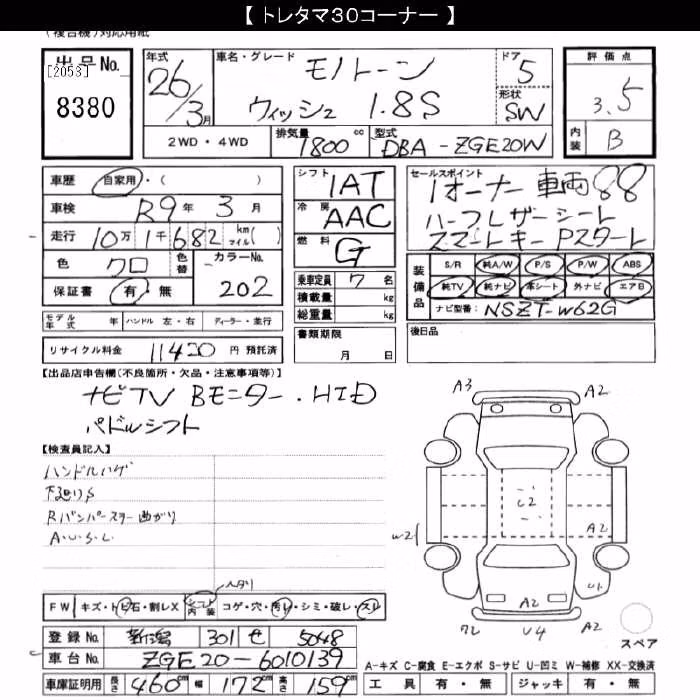 【 トレタマ30コーナー 】
(複合機)対応用紙
出品No. [2053] 8380
年式 26/3月
車名・グレード モノトーン
ウィッシュ 1.8S
ドア 5
形状 SW
評価点 3.5
内装 B
2WD・4WD 排気量 1800cc 型式 DBA-ZGE20W
車歴 自家用・( )
車検 R9年 3月
走行 10万1千682 km マイル( )
色 クロ 色替 カラーNo. 202
保証書 有・無
シフト 1AT
冷房 AAC
燃料 G
乗車定員 7名
積載量 kg
総重量 kg
書類期限 月 日
セールスポイント
1オーナー 車両88
ハーフレザーシート
スマートキー Pスタート
装備品 S/R 純A/W P/S P/W ABS
純TV 純ナビ 革シート 外ナビ エアB
ナビ型番: NSZT-W62G
後日品
モデル年式 年 ハンドル 左・右 ディーラー・並行
リサイクル料金 11420 円 預託済
【出品店申告欄(不良箇所・欠品・注意事項等)】
ナビTV Bモニター.HID
パドルシフト
【検査員記入】
ハンドルハゲ
下廻りS
Rバンパーステー曲がり
A.U.S.L
A3 A2
C2
W2 A2
U1
A2
U4 A2
スペア
FW キズ・トビ石・割レX シフト内装 コゲ・穴・汚レ・シミ・破レ・スレ
ヘタリ
登録No. 新潟 301 せ 5048
車台No. ZGE20-6010139
車庫証明用 長さ 460cm 幅 172cm 高さ 159cm
A-キズ C-腐食 E-エクボ S-サビ U-凹ミ W-補修 XX-交換済
工具 有・無 ジャッキ 有・無